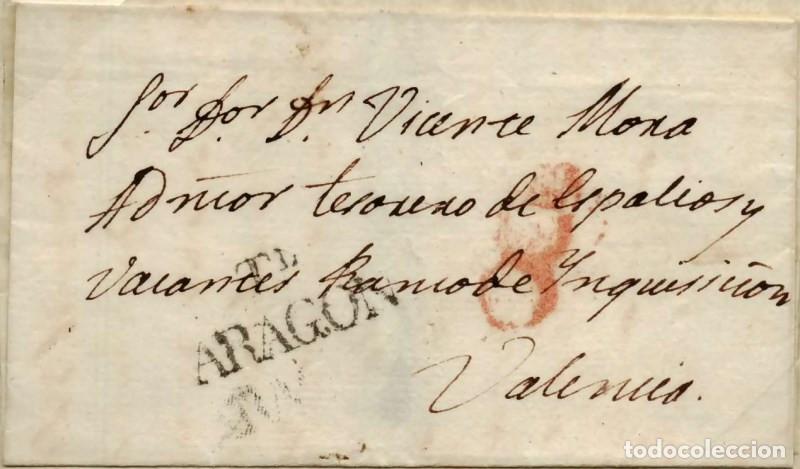 Sor. Dor. Dn. Vicente Mora
Admor tesorero de Espolios y
Vacantes Ramo de Ynquisicion
Valencia.
ARAGON
8
todocoleccion